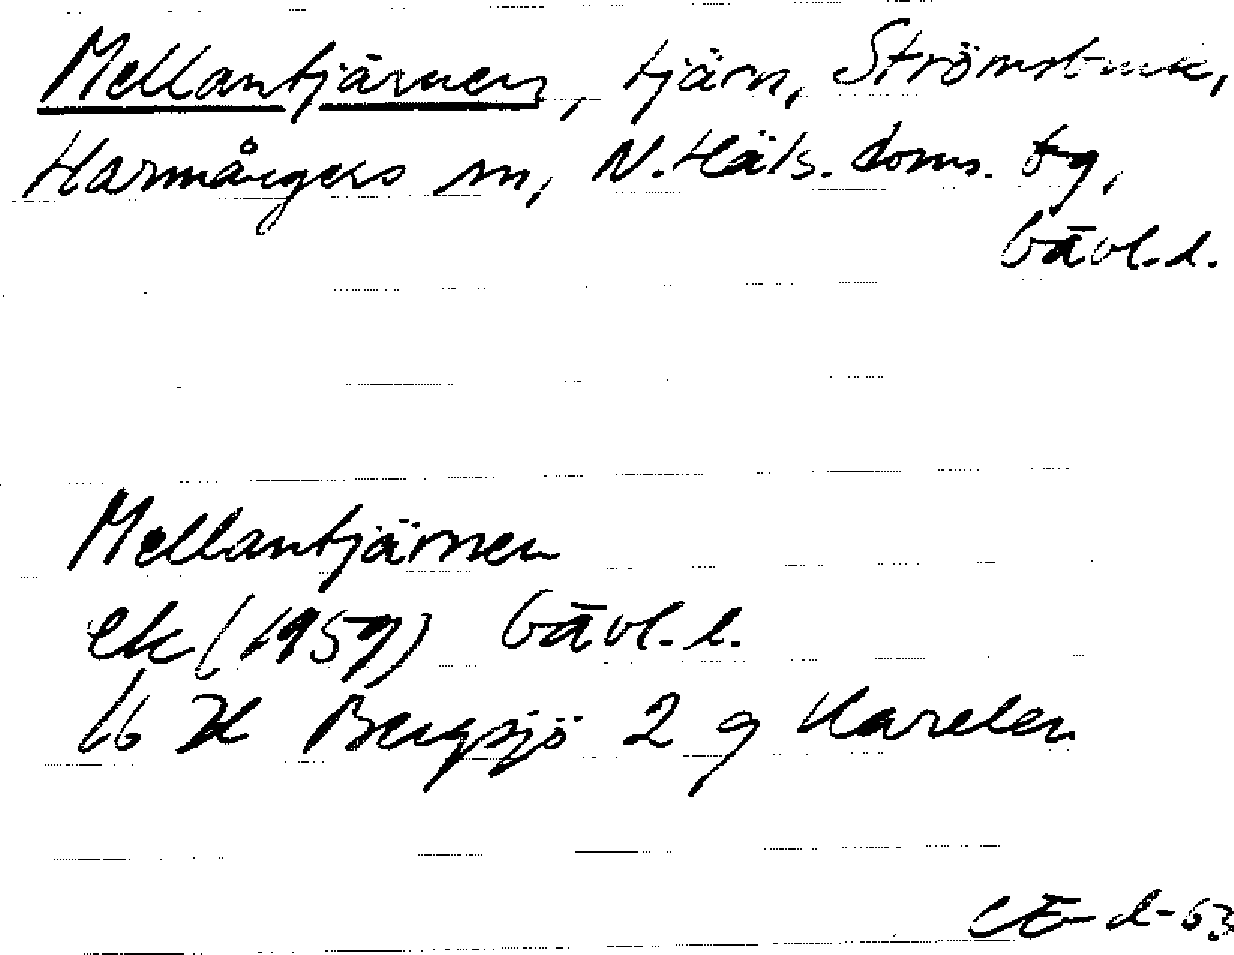 Mellantjärnen, tjärn, Strömsbruk,
Harmångers sn, N. Häls. doms. tg,
Gävl. l.
Mellantjärnen
ek (1959) Gävl. l.
16 H Bergsjö 2 g Karelen
CE-d-63